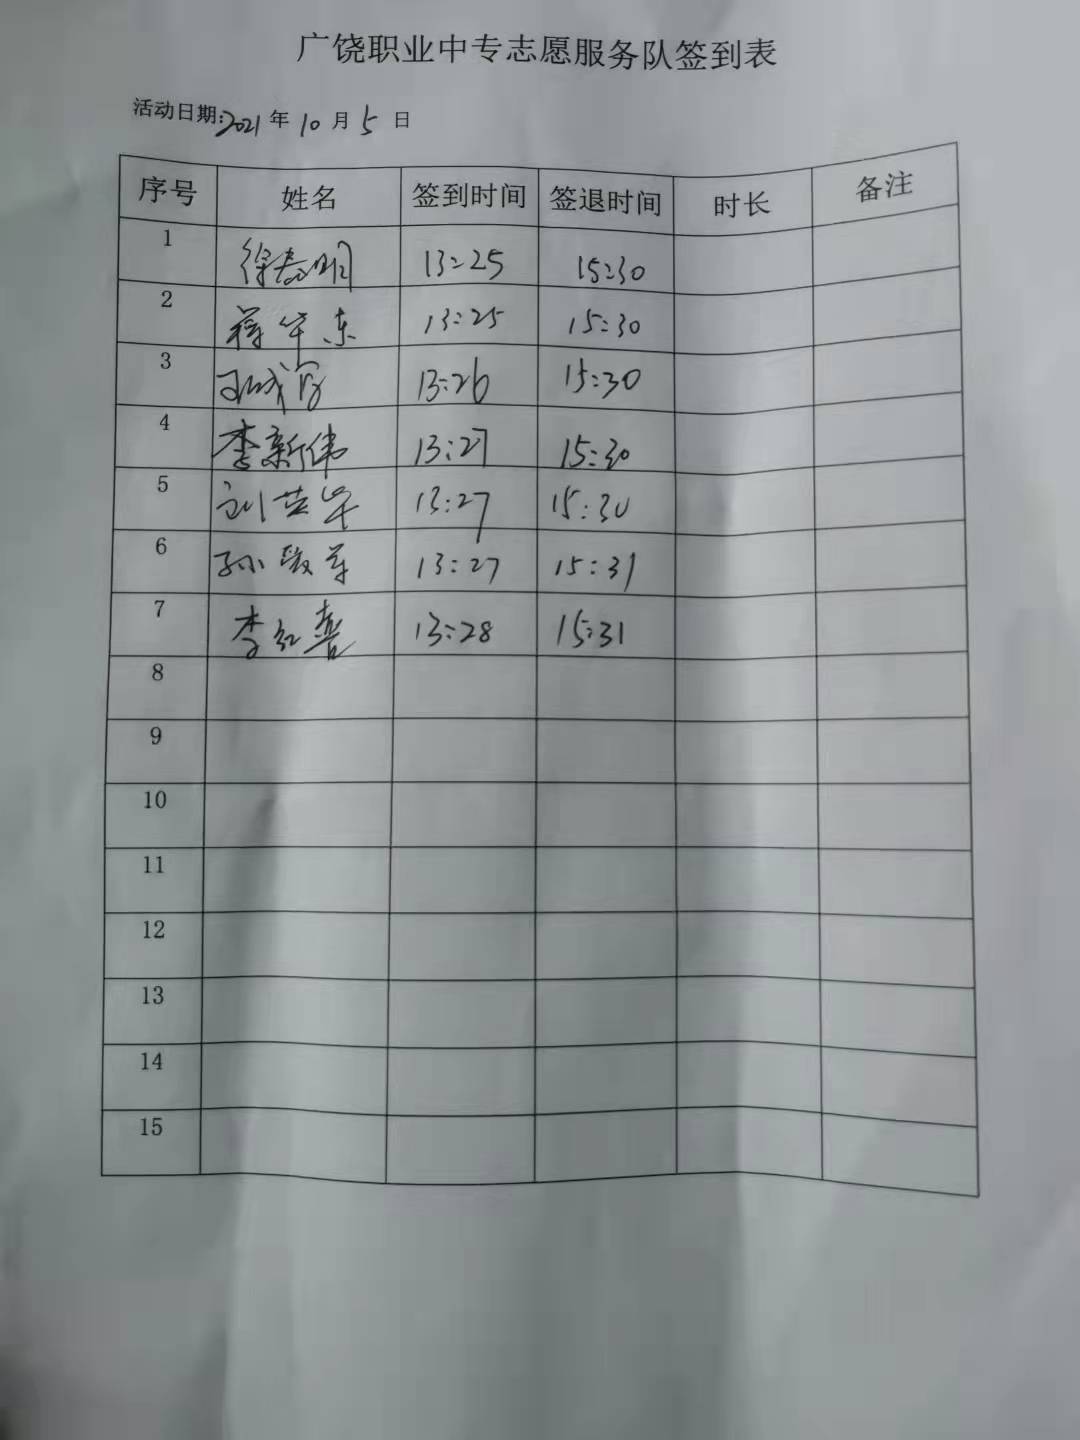 广饶职业中专志愿服务队签到表
活动日期:2021年10月5日
序号 姓名 签到时间 签退时间 时长 备注
1 徐春明 13:25 15:30
2 蒋华东 13:25 15:30
3 13:26 15:30
4 李新伟 13:27 15:30
5 刘英华 13:27 15:30
6 孙 军 13:27 15:31
7 李红喜 13:28 15:31
8
9
10
11
12
13
14
15